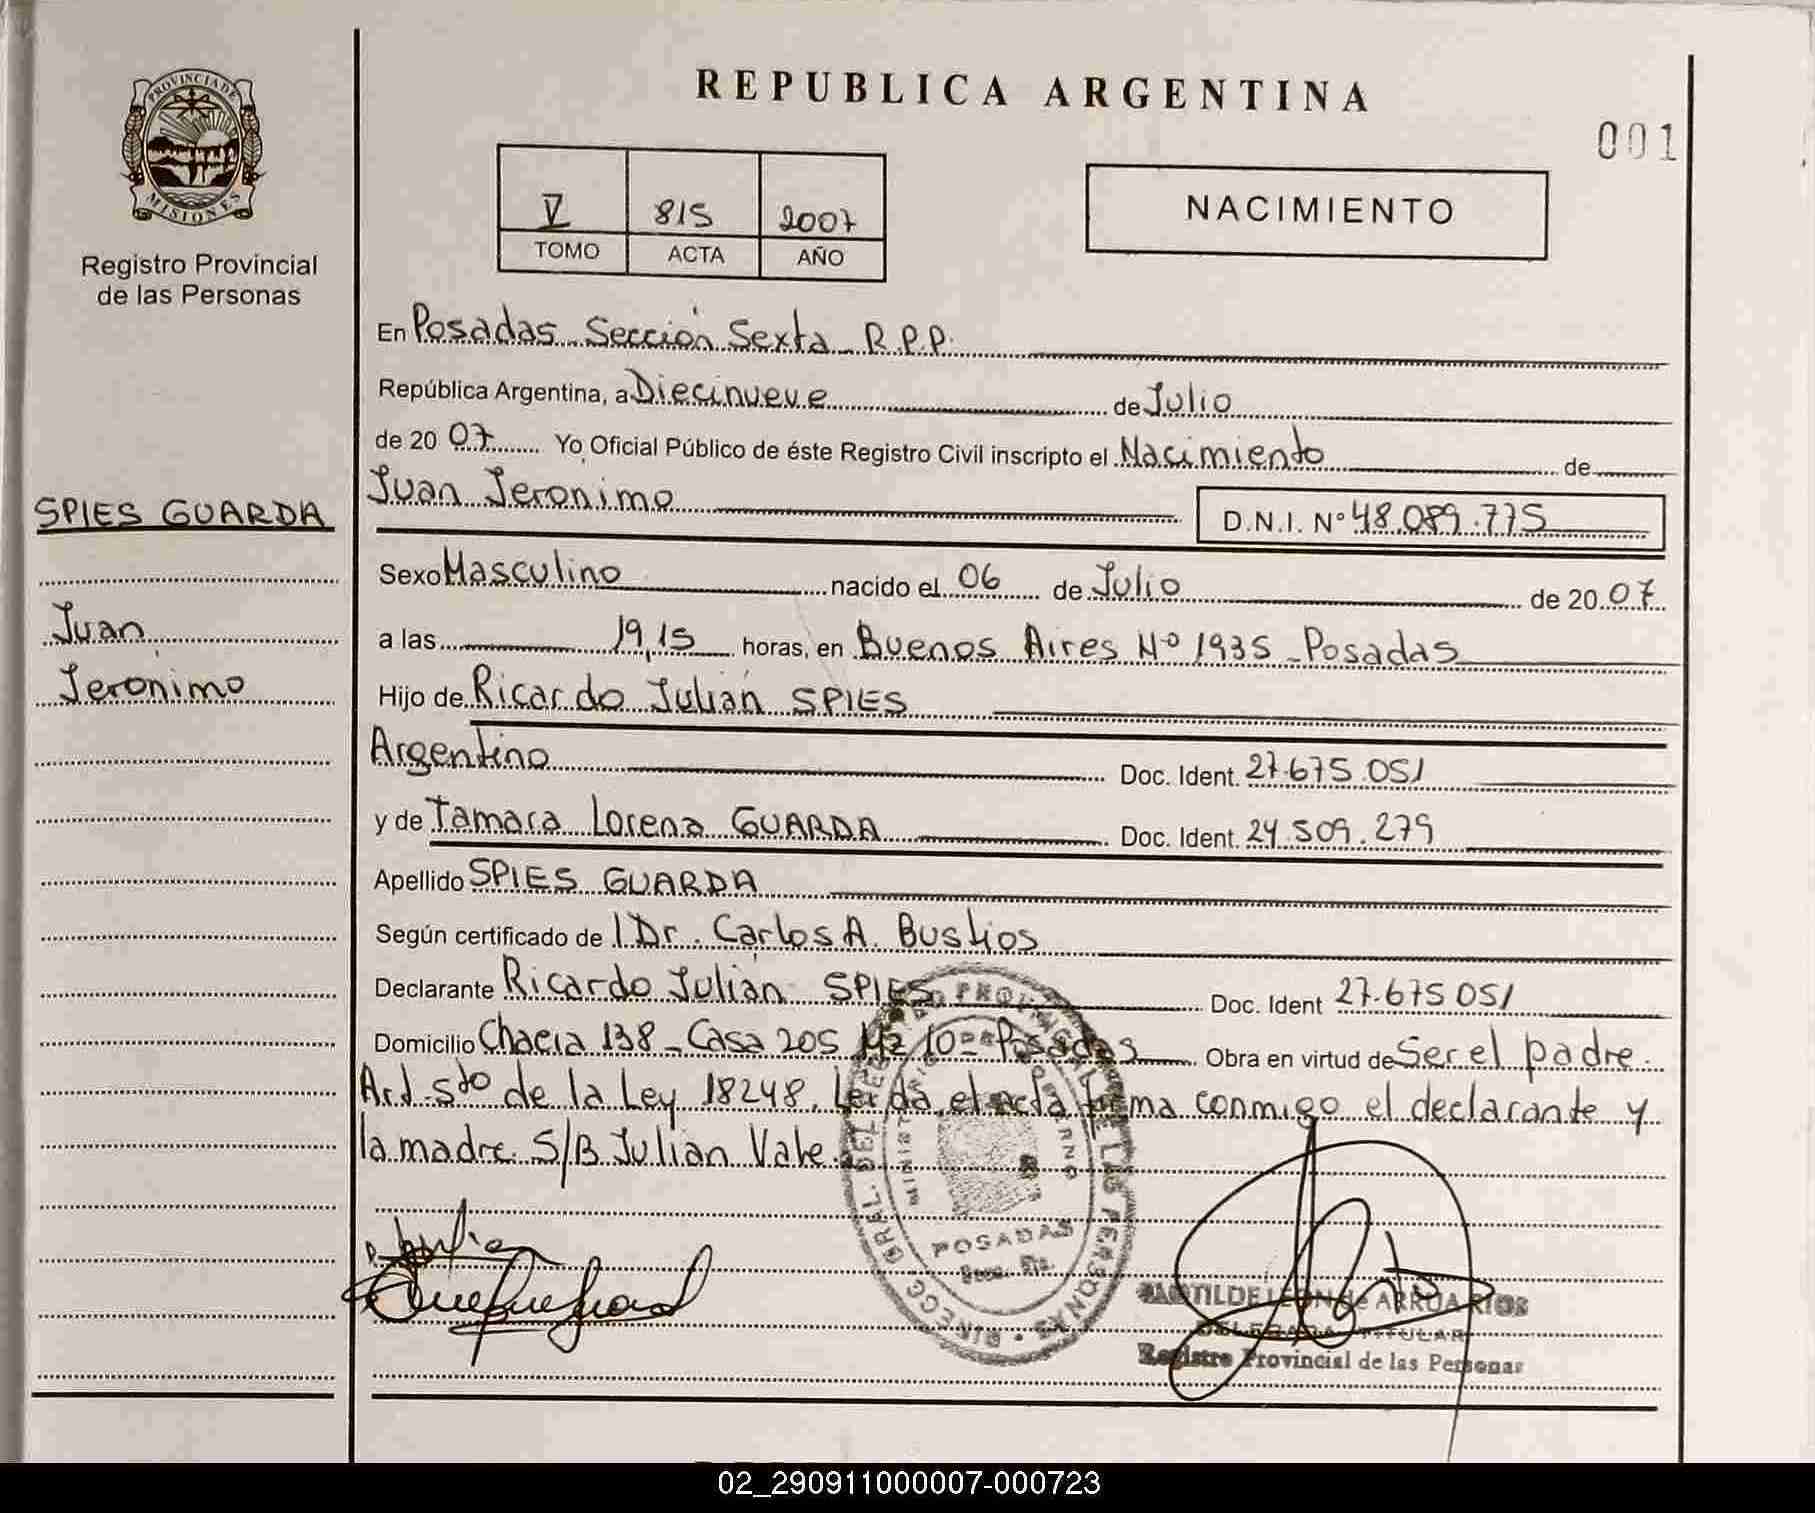 PROVINCIA DE
MISIONES
Registro Provincial
de las Personas
SPIES GUARDA
Juan
Jerónimo
REPUBLICA ARGENTINA
001
V 815 2007
TOMO ACTA AÑO
NACIMIENTO
En Posadas Sección Sexta R.P.P.
República Argentina, a Diecinueve de Julio
de 20 07 Yo Oficial Público de éste Registro Civil inscripto el Nacimiento de
Juan Jerónimo D.N.I. Nº 48.089.775
Sexo Masculino nacido el 06 de Julio de 20 07
a las 19,15 horas, en Buenos Aires Nº 1935 - Posadas
Hijo de Ricardo Julián SPIES
Argentino Doc. Ident. 27.675.051
y de Tamara Lorena GUARDA Doc. Ident. 24.509.279
Apellido SPIES GUARDA
Según certificado de l Dr. Carlos A. Bustios
Declarante Ricardo Julián SPIES Doc. Ident 27.675 051
Domicilio 138 - Casa 205 Mz 10 - Posadas Obra en virtud de Ser el padre.
Art. 5to de la Ley 18248. Leída el acta firma conmigo el declarante y
la madre. S/B Julián Vale.
DIRECC. GRAL. DEL REGISTRO PROVINCIAL DE LAS PERSONAS
MINISTERIO GOBIERNO
POSADAS
Secc. 6ta.
MATILDE LEON de ARRUA RIOS
DELEGADA TITULAR
Registro Provincial de las Personas
02_290911000007-000723